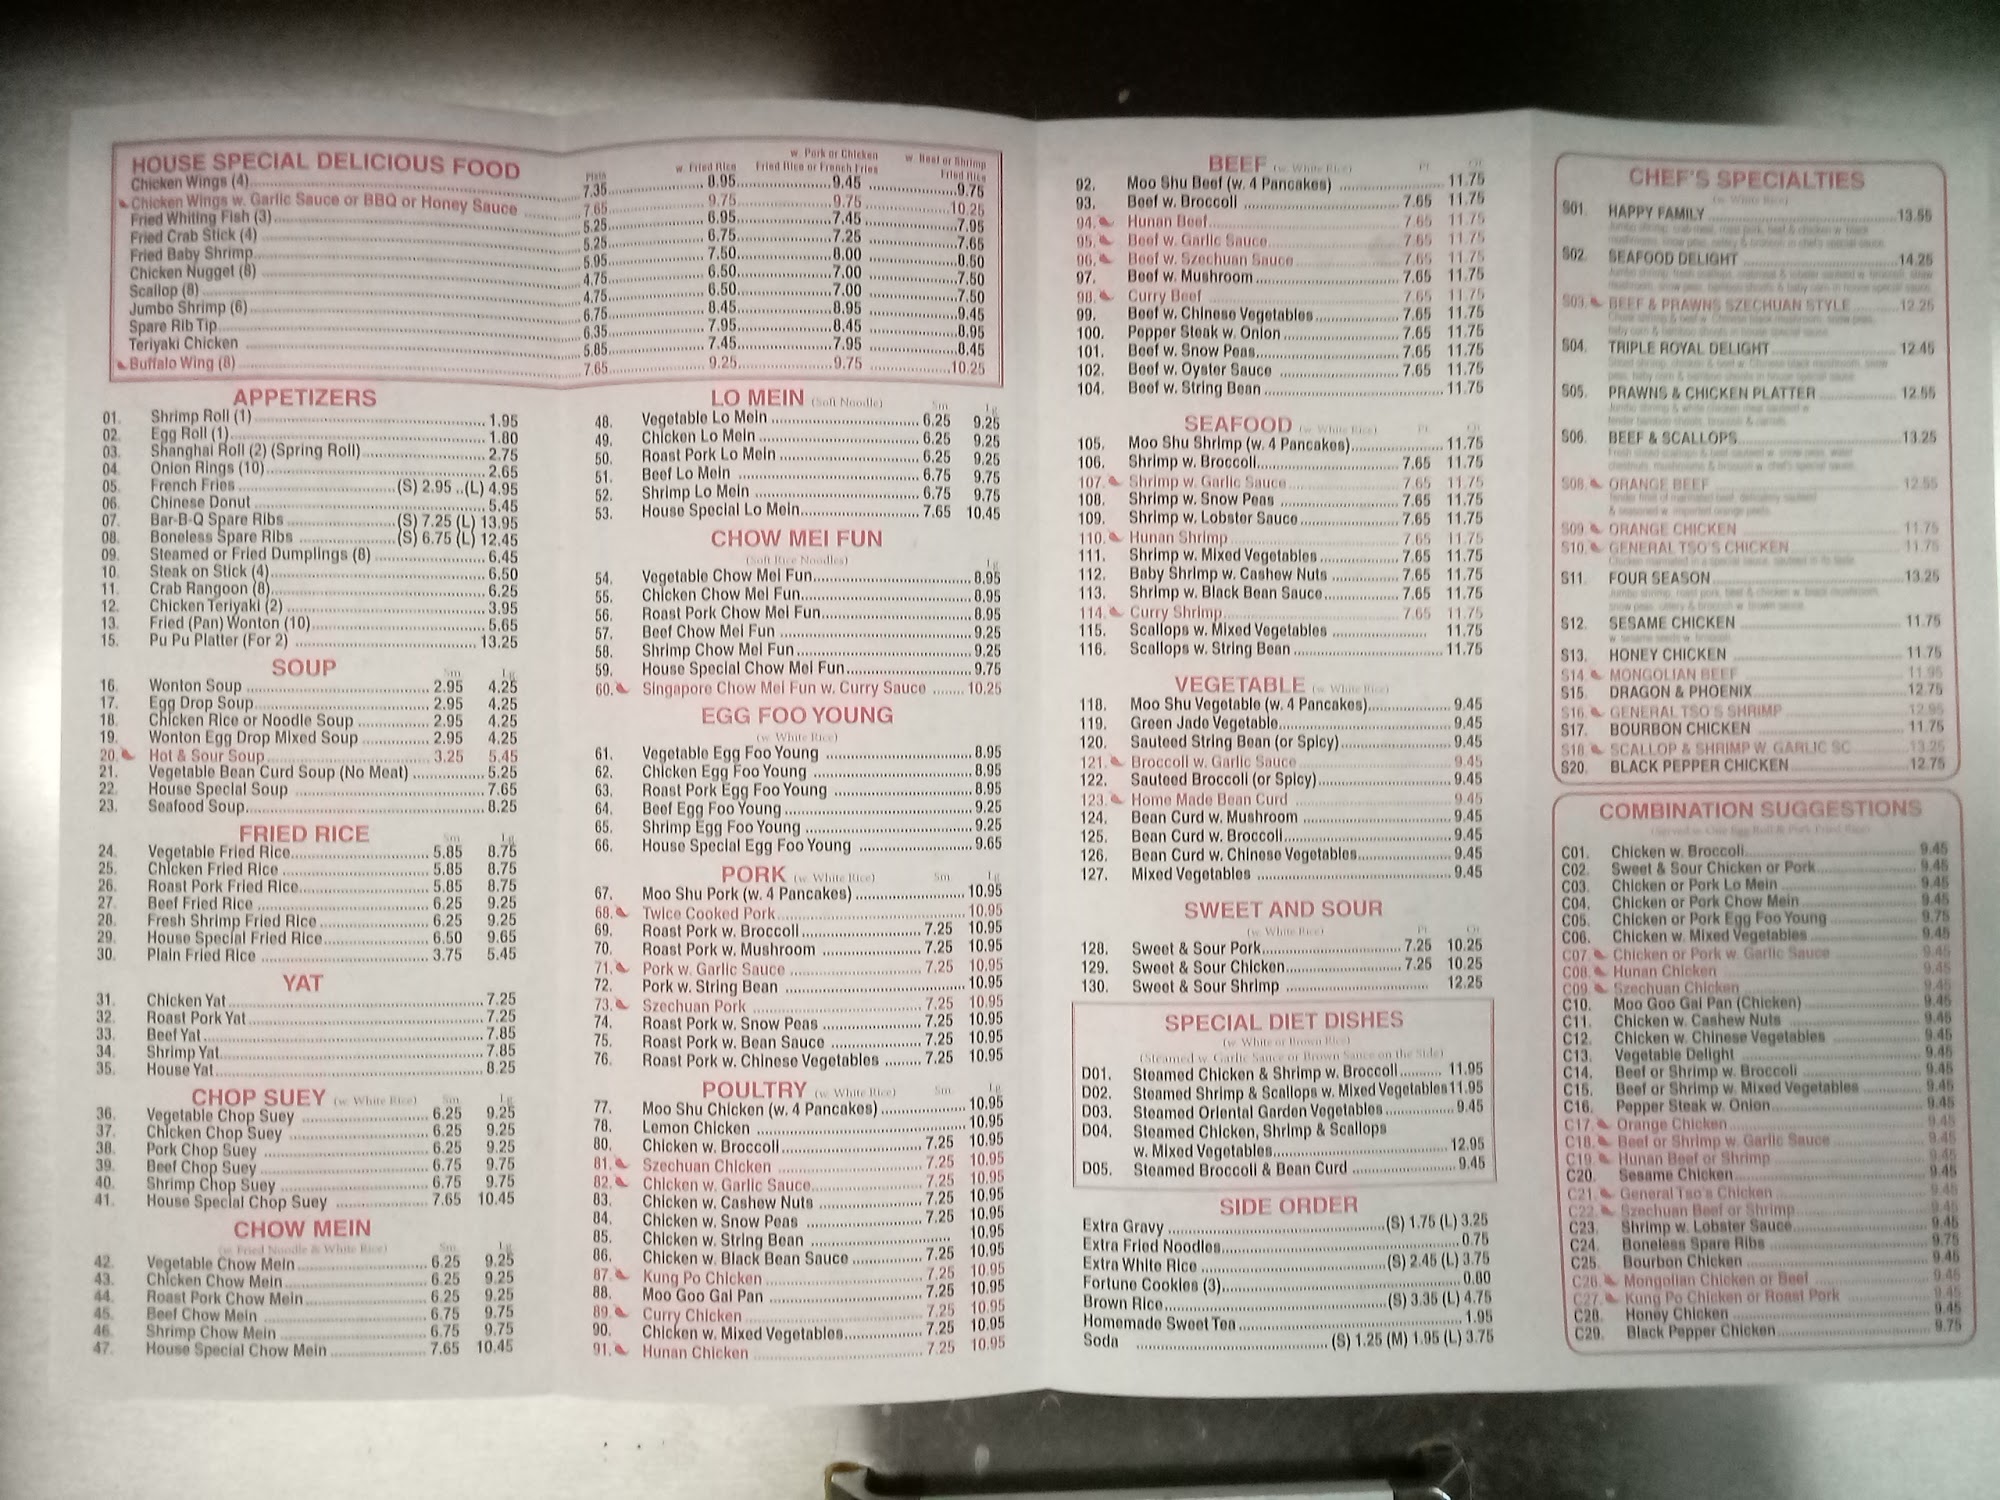 HOUSE SPECIAL DELICIOUS FOOD
Plain w. Fried Rice w. Pork or Chicken Fried Rice or French Fries w. Beef or Shrimp Fried Rice
Chicken Wings (4) 7.35 8.95 9.45 9.75
Chicken Wings w. Garlic Sauce or BBQ or Honey Sauce 7.65 9.75 9.75 10.25
Fried Whiting Fish (3) 5.25 6.95 7.45 7.95
Fried Crab Stick (4) 5.25 6.75 7.25 7.65
Fried Baby Shrimp 5.95 7.50 8.00 8.50
Chicken Nugget (8) 4.75 6.50 7.00 7.50
Scallop (8) 4.75 6.50 7.00 7.50
Jumbo Shrimp (6) 6.75 8.45 8.95 9.45
Spare Rib Tip 6.35 7.95 8.45 8.95
Teriyaki Chicken 5.85 7.45 7.95 8.45
Buffalo Wing (8) 7.65 9.25 9.75 10.25
APPETIZERS
01. Shrimp Roll (1) 1.95
02. Egg Roll (1) 1.80
03. Shanghai Roll (2) (Spring Roll) 2.75
04. Onion Rings (10) 2.65
05. French Fries (S) 2.95 ..(L) 4.95
06. Chinese Donut 5.45
07. Bar-B-Q Spare Ribs (S) 7.25 (L) 13.95
08. Boneless Spare Ribs (S) 6.75 (L) 12.45
09. Steamed or Fried Dumplings (8) 6.45
10. Steak on Stick (4) 6.50
11. Crab Rangoon (8) 6.25
12. Chicken Teriyaki (2) 3.95
13. Fried (Pan) Wonton (10) 5.65
15. Pu Pu Platter (For 2) 13.25
SOUP Sm. Lg.
16. Wonton Soup 2.95 4.25
17. Egg Drop Soup 2.95 4.25
18. Chicken Rice or Noodle Soup 2.95 4.25
19. Wonton Egg Drop Mixed Soup 2.95 4.25
20. Hot & Sour Soup 3.25 5.45
21. Vegetable Bean Curd Soup (No Meat) 5.25
22. House Special Soup 7.65
23. Seafood Soup 8.25
FRIED RICE Sm. Lg.
24. Vegetable Fried Rice 5.85 8.75
25. Chicken Fried Rice 5.85 8.75
26. Roast Pork Fried Rice 5.85 8.75
27. Beef Fried Rice 6.25 9.25
28. Fresh Shrimp Fried Rice 6.25 9.25
29. House Special Fried Rice 6.50 9.65
30. Plain Fried Rice 3.75 5.45
YAT
31. Chicken Yat 7.25
32. Roast Pork Yat 7.25
33. Beef Yat 7.85
34. Shrimp Yat 7.85
35. House Yat 8.25
CHOP SUEY (w. White Rice) Sm. Lg.
36. Vegetable Chop Suey 6.25 9.25
37. Chicken Chop Suey 6.25 9.25
38. Pork Chop Suey 6.25 9.25
39. Beef Chop Suey 6.75 9.75
40. Shrimp Chop Suey 6.75 9.75
41. House Special Chop Suey 7.65 10.45
CHOW MEIN
(w. Fried Noodle & White Rice) Sm. Lg.
42. Vegetable Chow Mein 6.25 9.25
43. Chicken Chow Mein 6.25 9.25
44. Roast Pork Chow Mein 6.25 9.25
45. Beef Chow Mein 6.75 9.75
46. Shrimp Chow Mein 6.75 9.75
47. House Special Chow Mein 7.65 10.45
LO MEIN (Soft Noodle) Sm. Lg.
48. Vegetable Lo Mein 6.25 9.25
49. Chicken Lo Mein 6.25 9.25
50. Roast Pork Lo Mein 6.25 9.25
51. Beef Lo Mein 6.75 9.75
52. Shrimp Lo Mein 6.75 9.75
53. House Special Lo Mein 7.65 10.45
CHOW MEI FUN
(Soft Rice Noodles) Lg.
54. Vegetable Chow Mei Fun 8.95
55. Chicken Chow Mei Fun 8.95
56. Roast Pork Chow Mei Fun 8.95
57. Beef Chow Mei Fun 9.25
58. Shrimp Chow Mei Fun 9.25
59. House Special Chow Mei Fun 9.75
60. Singapore Chow Mei Fun w. Curry Sauce 10.25
EGG FOO YOUNG
(w. White Rice)
61. Vegetable Egg Foo Young 8.95
62. Chicken Egg Foo Young 8.95
63. Roast Pork Egg Foo Young 8.95
64. Beef Egg Foo Young 9.25
65. Shrimp Egg Foo Young 9.25
66. House Special Egg Foo Young 9.65
PORK (w. White Rice) Sm. Lg.
67. Moo Shu Pork (w. 4 Pancakes) 10.95
68. Twice Cooked Pork 10.95
69. Roast Pork w. Broccoli 7.25 10.95
70. Roast Pork w. Mushroom 7.25 10.95
71. Pork w. Garlic Sauce 7.25 10.95
72. Pork w. String Bean 10.95
73. Szechuan Pork 7.25 10.95
74. Roast Pork w. Snow Peas 7.25 10.95
75. Roast Pork w. Bean Sauce 7.25 10.95
76. Roast Pork w. Chinese Vegetables 7.25 10.95
POULTRY (w. White Rice) Sm. Lg.
77. Moo Shu Chicken (w. 4 Pancakes) 10.95
78. Lemon Chicken 10.95
80. Chicken w. Broccoli 7.25 10.95
81. Szechuan Chicken 7.25 10.95
82. Chicken w. Garlic Sauce 7.25 10.95
83. Chicken w. Cashew Nuts 7.25 10.95
84. Chicken w. Snow Peas 7.25 10.95
85. Chicken w. String Bean 10.95
86. Chicken w. Black Bean Sauce 7.25 10.95
87. Kung Po Chicken 7.25 10.95
88. Moo Goo Gai Pan 7.25 10.95
89. Curry Chicken 7.25 10.95
90. Chicken w. Mixed Vegetables 7.25 10.95
91. Hunan Chicken 7.25 10.95
BEEF (w. White Rice) Pt. Qt.
92. Moo Shu Beef (w. 4 Pancakes) 11.75
93. Beef w. Broccoli 7.65 11.75
94. Hunan Beef 7.65 11.75
95. Beef w. Garlic Sauce 7.65 11.75
96. Beef w. Szechuan Sauce 7.65 11.75
97. Beef w. Mushroom 7.65 11.75
98. Curry Beef 7.65 11.75
99. Beef w. Chinese Vegetables 7.65 11.75
100. Pepper Steak w. Onion 7.65 11.75
101. Beef w. Snow Peas 7.65 11.75
102. Beef w. Oyster Sauce 7.65 11.75
104. Beef w. String Bean 11.75
SEAFOOD (w. White Rice) Pt. Qt.
105. Moo Shu Shrimp (w. 4 Pancakes) 11.75
106. Shrimp w. Broccoli 7.65 11.75
107. Shrimp w. Garlic Sauce 7.65 11.75
108. Shrimp w. Snow Peas 7.65 11.75
109. Shrimp w. Lobster Sauce 7.65 11.75
110. Hunan Shrimp 7.65 11.75
111. Shrimp w. Mixed Vegetables 7.65 11.75
112. Baby Shrimp w. Cashew Nuts 7.65 11.75
113. Shrimp w. Black Bean Sauce 7.65 11.75
114. Curry Shrimp 7.65 11.75
115. Scallops w. Mixed Vegetables 11.75
116. Scallops w. String Bean 11.75
VEGETABLE (w. White Rice)
118. Moo Shu Vegetable (w. 4 Pancakes) 9.45
119. Green Jade Vegetable 9.45
120. Sauteed String Bean (or Spicy) 9.45
121. Broccoli w. Garlic Sauce 9.45
122. Sauteed Broccoli (or Spicy) 9.45
123. Home Made Bean Curd 9.45
124. Bean Curd w. Mushroom 9.45
125. Bean Curd w. Broccoli 9.45
126. Bean Curd w. Chinese Vegetables 9.45
127. Mixed Vegetables 9.45
SWEET AND SOUR
(w. White Rice) Pt. Qt.
128. Sweet & Sour Pork 7.25 10.25
129. Sweet & Sour Chicken 7.25 10.25
130. Sweet & Sour Shrimp 12.25
SPECIAL DIET DISHES
(w. White or Brown Rice)
(Steamed w. Garlic Sauce or Brown Sauce on the Side)
D01. Steamed Chicken & Shrimp w. Broccoli 11.95
D02. Steamed Shrimp & Scallops w. Mixed Vegetables 11.95
D03. Steamed Oriental Garden Vegetables 9.45
D04. Steamed Chicken, Shrimp & Scallops
w. Mixed Vegetables 12.95
D05. Steamed Broccoli & Bean Curd 9.45
SIDE ORDER
Extra Gravy (S) 1.75 (L) 3.25
Extra Fried Noodles 0.75
Extra White Rice (S) 2.45 (L) 3.75
Fortune Cookies (3) 0.80
Brown Rice (S) 3.35 (L) 4.75
Homemade Sweet Tea 1.95
Soda (S) 1.25 (M) 1.95 (L) 3.75
CHEF'S SPECIALTIES
(w. White Rice)
S01. HAPPY FAMILY 13.55
S02. SEAFOOD DELIGHT 14.25
S03. BEEF & PRAWNS SZECHUAN STYLE 12.25
S04. TRIPLE ROYAL DELIGHT 12.45
S05. PRAWNS & CHICKEN PLATTER 12.55
S06. BEEF & SCALLOPS 13.25
S08. ORANGE BEEF 12.55
S09 ORANGE CHICKEN 11.75
S10. GENERAL TSO'S CHICKEN 11.75
S11. FOUR SEASON 13.25
S12. SESAME CHICKEN 11.75
S13. HONEY CHICKEN 11.75
S14 MONGOLIAN BEEF 11.95
S15. DRAGON & PHOENIX 12.75
S16. GENERAL TSO'S SHRIMP 12.95
S17. BOURBON CHICKEN 11.75
S18 SCALLOP & SHRIMP W. GARLIC SC 13.25
S20. BLACK PEPPER CHICKEN 12.75
COMBINATION SUGGESTIONS
(Served w. One Egg Roll & Pork Fried Rice)
C01. Chicken w. Broccoli 9.45
C02. Sweet & Sour Chicken or Pork 9.45
C03. Chicken or Pork Lo Mein 9.45
C04. Chicken or Pork Chow Mein 9.45
C05. Chicken or Pork Egg Foo Young 9.75
C06. Chicken w. Mixed Vegetables 9.45
C07. Chicken or Pork w. Garlic Sauce 9.45
C08. Hunan Chicken 9.45
C09. Szechuan Chicken 9.45
C10. Moo Goo Gai Pan (Chicken) 9.45
C11. Chicken w. Cashew Nuts 9.45
C12. Chicken w. Chinese Vegetables 9.45
C13. Vegetable Delight 9.45
C14. Beef or Shrimp w. Broccoli 9.45
C15. Beef or Shrimp w. Mixed Vegetables 9.45
C16. Pepper Steak w. Onion 9.45
C17. Orange Chicken 9.45
C18. Beef or Shrimp w. Garlic Sauce 9.45
C19. Hunan Beef or Shrimp 9.45
C20. Sesame Chicken 9.45
C21. General Tso's Chicken 9.45
C22. Szechuan Beef or Shrimp 9.45
C23. Shrimp w. Lobster Sauce 9.45
C24. Boneless Spare Ribs 9.75
C25. Bourbon Chicken 9.45
C26. Mongolian Chicken or Beef 9.45
C27. Kung Po Chicken or Roast Pork 9.45
C28. Honey Chicken 9.45
C29. Black Pepper Chicken 9.75